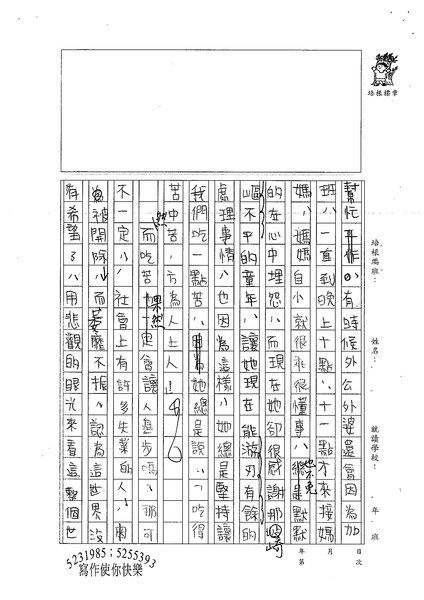 培根標章
培根儒班：
姓名：
就讀學校：
年　班
幫忙工作，有時候外公外婆還會因為加
班，一直到晚上十點、十一點才來接媽
媽，媽媽自小就很乖很懂事，總是默默
也不免
的在心中埋怨，而現在她卻很感謝那崎
嶇不平的童年，讓她現在能游刃有餘的
處理事情，也因為這樣，她總是堅持讓
我們吃一點苦，她總是說：「吃得
苦中苦，方為人上人。」
然而吃苦果然一定會讓人進步嗎？那可
不一定，社會上有許多失業的人，因
為被開除，而萎靡不振，認為這世界沒
有希望了，用悲觀的眼光來看這整個世
年　月　日
第　次
5231985；5255393
寫作使你快樂